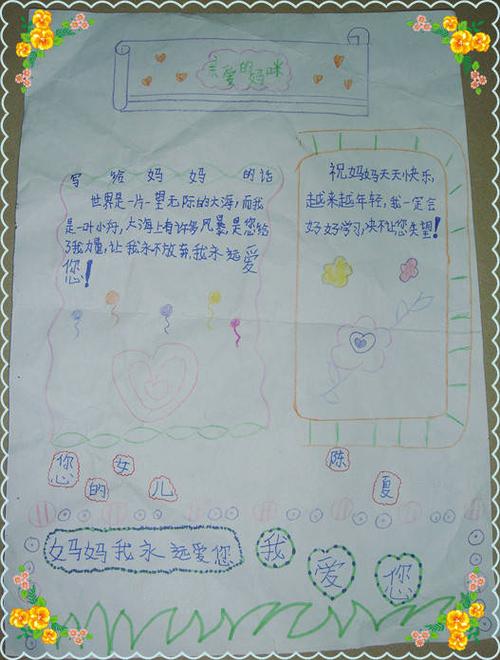 亲爱的妈咪
写给妈妈的话
世界是一片一望无际的大海,而我
是一叶小舟,大海上有许多风暴是您给
了我力量,让我永不放弃,我永远爱
您!
祝妈妈天天快乐,
越来越年轻,我一定会
好好学习,决不让您失望!
您的女儿
陈夏
妈妈我永远爱您
我爱您